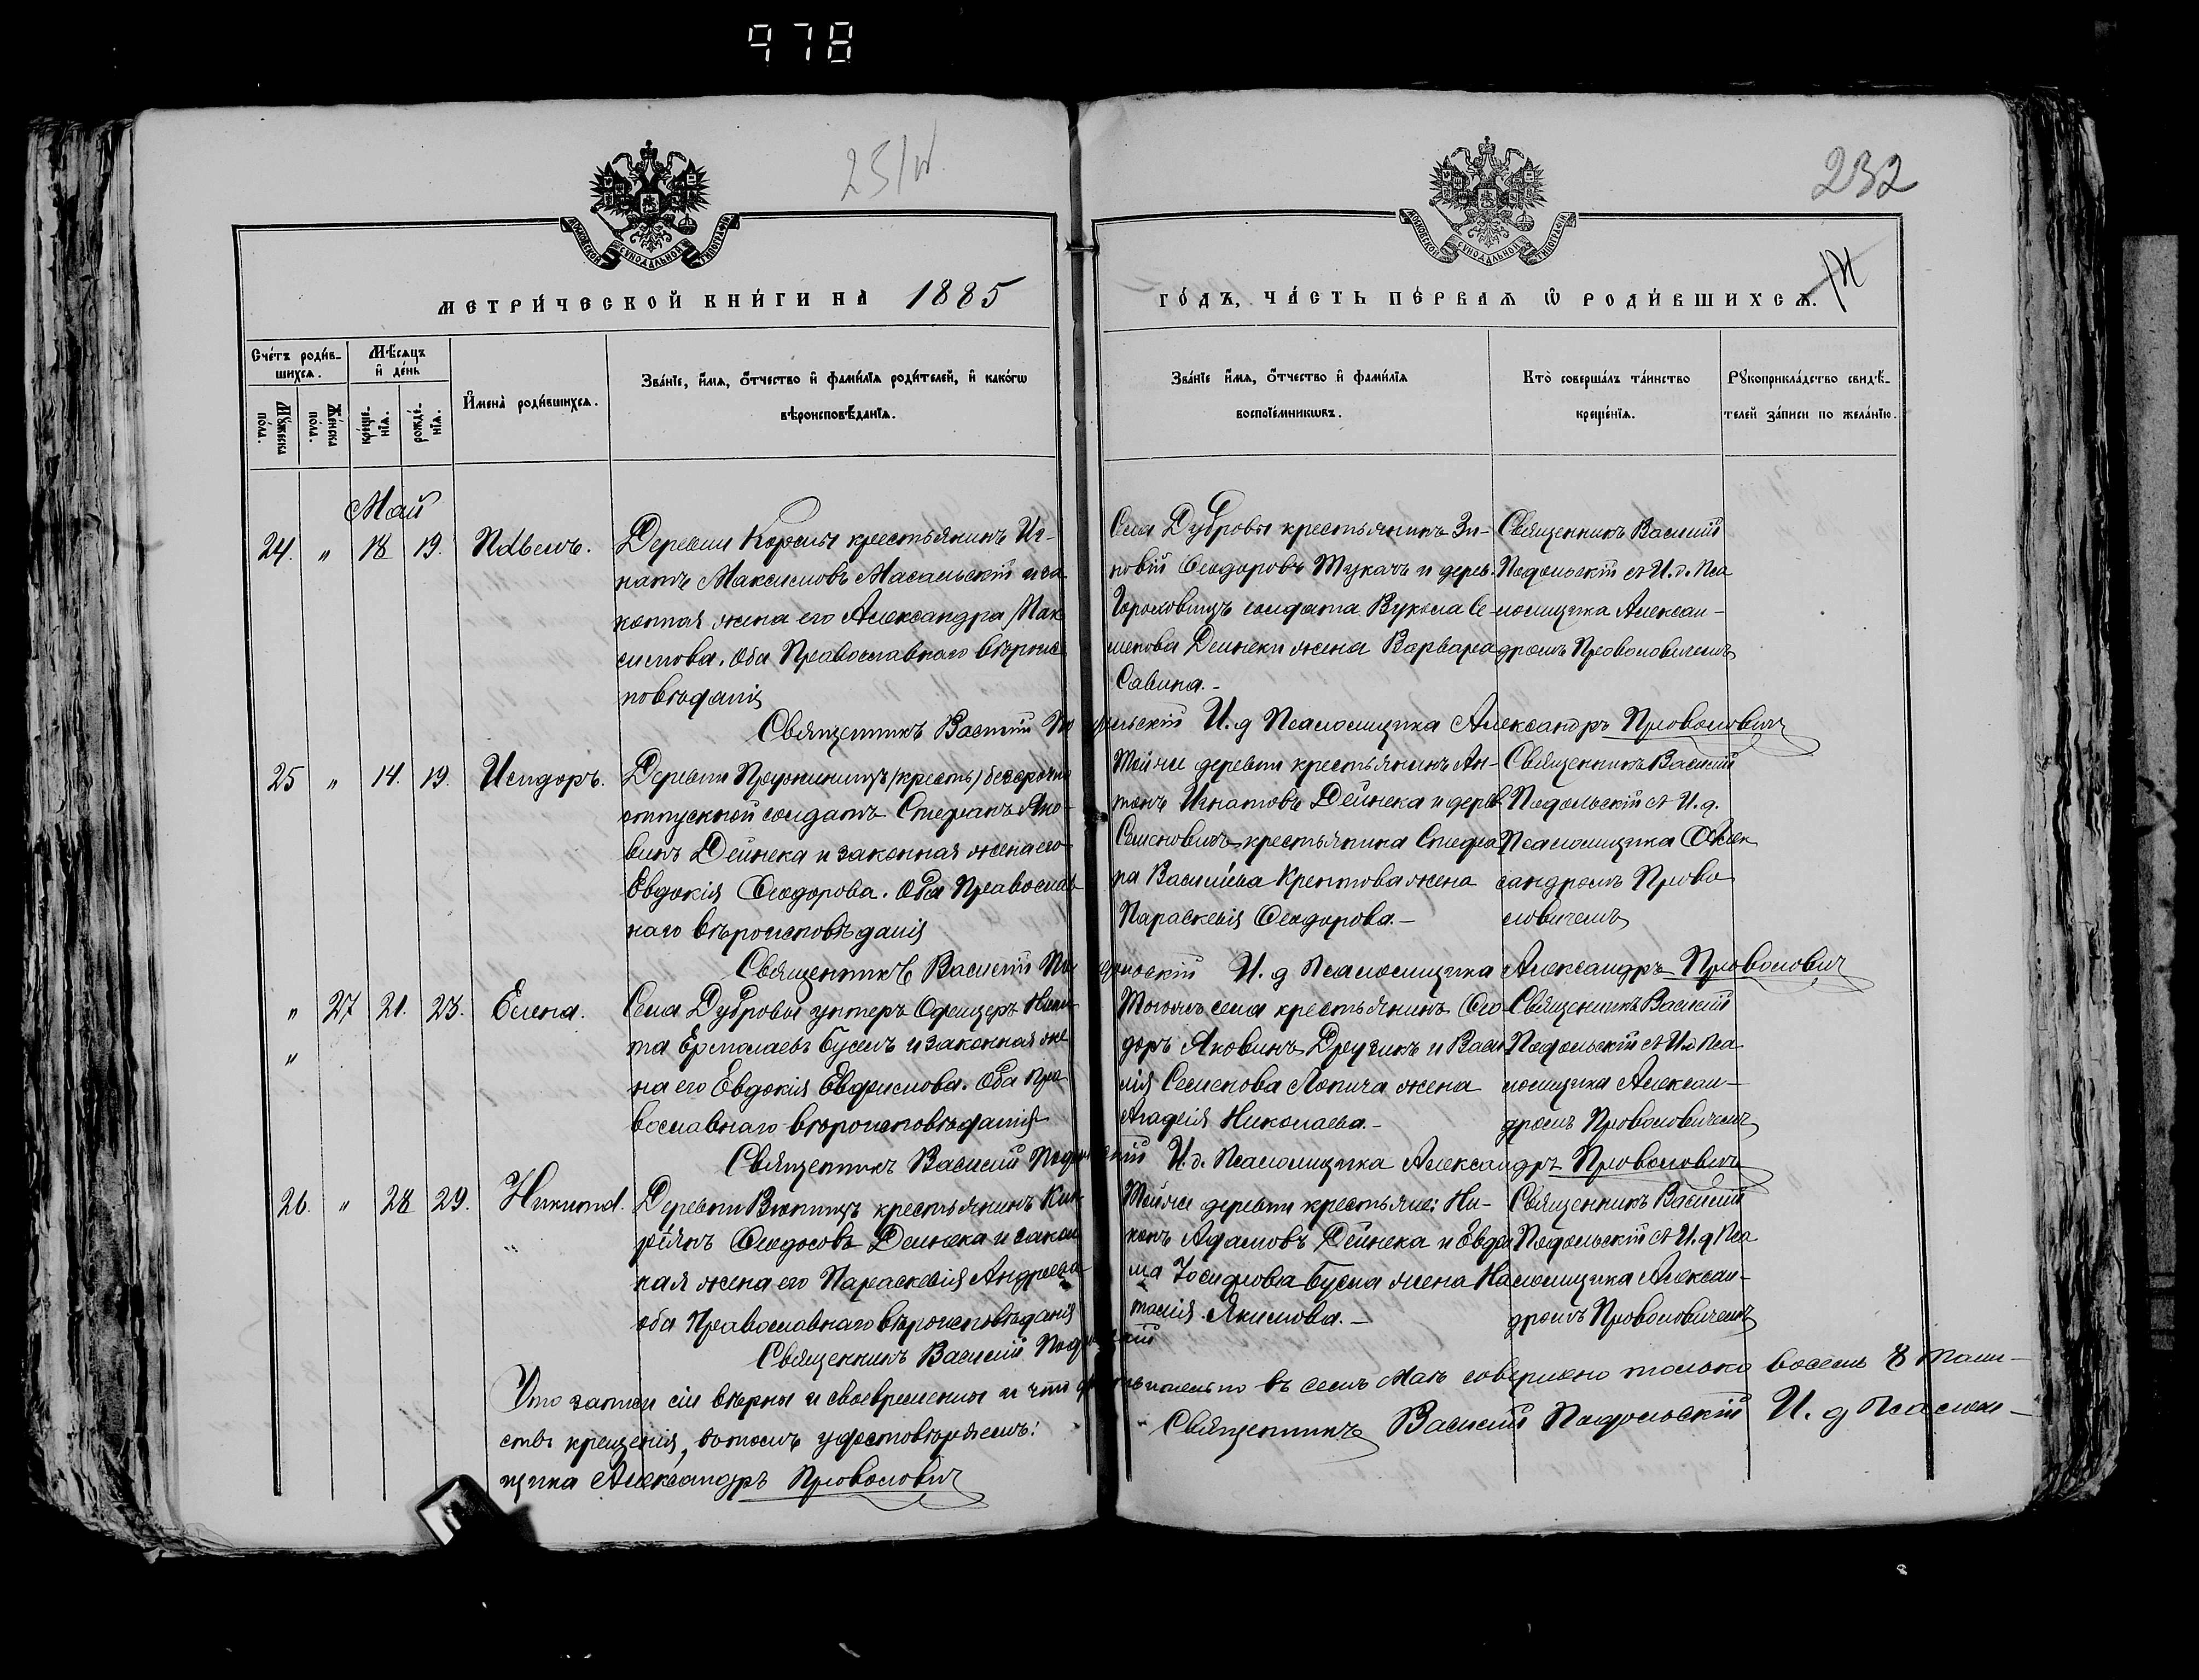 978
232
МОСКОВСКОЙ СѴНОДАЛЬНОЙ ТИПОГРАФІИ
МОСКОВСКОЙ СѴНОДАЛЬНОЙ ТИПОГРАФІИ
МЕТРИ́ЧЕСКОЙ КНИ́ГИ НА 1885
ГО́ДЪ, ЧА́СТЬ ПЕ́РВАѦ Ѡ РОДИ́ВШИХСѦ.
Сче́тъ роди́в-
шихсѧ.
Мѣ́сѧцъ
и҆ де́нь
Му́жеска
по́ла.
Же́нска
по́ла.
кре́ще-
нїѧ.
рожде́-
нїѧ.
И҆мена̀ роди́вшихсѧ.
Зва́нїе, и҆́мѧ, ѻ҆́тчество и҆ фами́лїѧ роди́телей, и҆ како́гѡ
вѣроисповѣ́данїѧ.
Зва́нїе и҆́мѧ, ѻ҆́тчество и҆ фами́лїѧ
воспрїе́мникѡвъ.
Кто̀ соверша́лъ та́инство
креще́нїѧ.
Рꙋкоприкла́дство свидѣ́-
телей за́писи по жела́нїю.
Май
24. " 18 19. Павелъ.
Деревни Корсны крестьянинъ Иг-
натъ Максимовъ Масальскій и за
конная жена его Александра Мак
симова. Оба Православнаго вѣроис
повѣданія
Села Дубровы крестьянинъ Зи-
новій Ѳеодоровъ Ткачъ и дерев.
солдата Вукола Се-
менова Дейнеки жена Варвара
Савина.-
Священникъ Василій
Подольскій съ И. д. Пса
ломщика Алексан-
дромъ Проволовичемъ
Священникъ Василій Подольскій И. д Псаломщика Александръ Проволовичъ
25 " 14. 19. Исидоръ.
Деревни (крестъ) безсрочно
отпускной солдатъ Стефанъ Яко-
винъ Дейнека и законная жена его
Евдокія Ѳеодорова. Оба Православ
наго вѣроисповѣданія
Тойже деревни крестьянинъ Ан-
тонъ Игнатовъ Дейнека и дерев.
Семеновичъ крестьянина Стефа
на Василіева жена
Параскевія Ѳеодорова.-
Священникъ Василій
Подольскій съ И. д.
Псаломщика Алек
сандромъ Прово
ловичемъ
Священникъ Василій Подольскій И. д Псаломщика Александръ Проволовичъ
" 27 21. 23. Елена.
"
Села Дубровы унтеръ Офицеръ Ники
та Ермолаевъ Буселъ и законная же
на его Евдокія Евфимова. Оба Пра
вославнаго вѣроисповѣданія
Тогожъ села крестьянинъ Ѳео-
доръ Яковинъ Друзикъ и Васи
лія Семенова Лопича жена
Агафія Николаева.-
Священникъ Василій
Подольскій съ И. д Пса
ломщика Алексан-
дромъ Проволовичемъ
Священникъ Василій Подольскій И. д. Псаломщика Александръ Проволовичъ
26. " 28 29. Никита.
Деревни крестьянинъ Ки-
ріянъ Ѳеодосовъ Дейнека и закон
ная жена его Параскевія Андреева
оба Православнаго вѣроисповѣданія
Тойже деревни крестьяне: Ни-
конъ Адамовъ Дейнека и Евфи
ма Іосифова Бусла жена На
талія Якимова.-
Священникъ Василій
Подольскій съ И. д Пса
ломщика Алексан-
дромъ Проволовичемъ
Священникъ Василій Подольскій
Что записи сіи вѣрны и своевременны и что дѣйствительно въ семъ Маѣ совершено только восемь 8 таин-
ствъ крещенія, въ томъ удостовѣряемъ: Священникъ Василій Подольскій И. д Псалом-
щика Александръ Проволовичъ